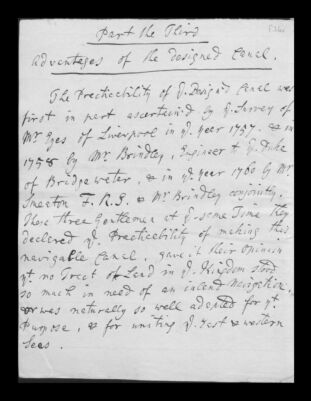 Part the Third
Advantages of the Designed Canal.
The Practicability of ye. Design'd Canal was
first in part ascertained by ye. Survey of
Mr. Eyes of Liverpool in ye. year 1757. & in
1758 by Mr. Brindley, Engineer to ye. Duke
of Bridgewater, & in ye. year 1760 by Mr.
Smeaton F.R.S. & Mr. Brindley conjointly.
These three Gentlemen at ye. same Time they
declared ye. Practicability of making this
navigable Canal, gave it their Opinion
yt. no Tract of Land in ye. Kingdom stood
so much in need of an inland Navigation,
or was naturally so well adapted for yt.
Purpose, & for uniting ye. East & western
Seas.